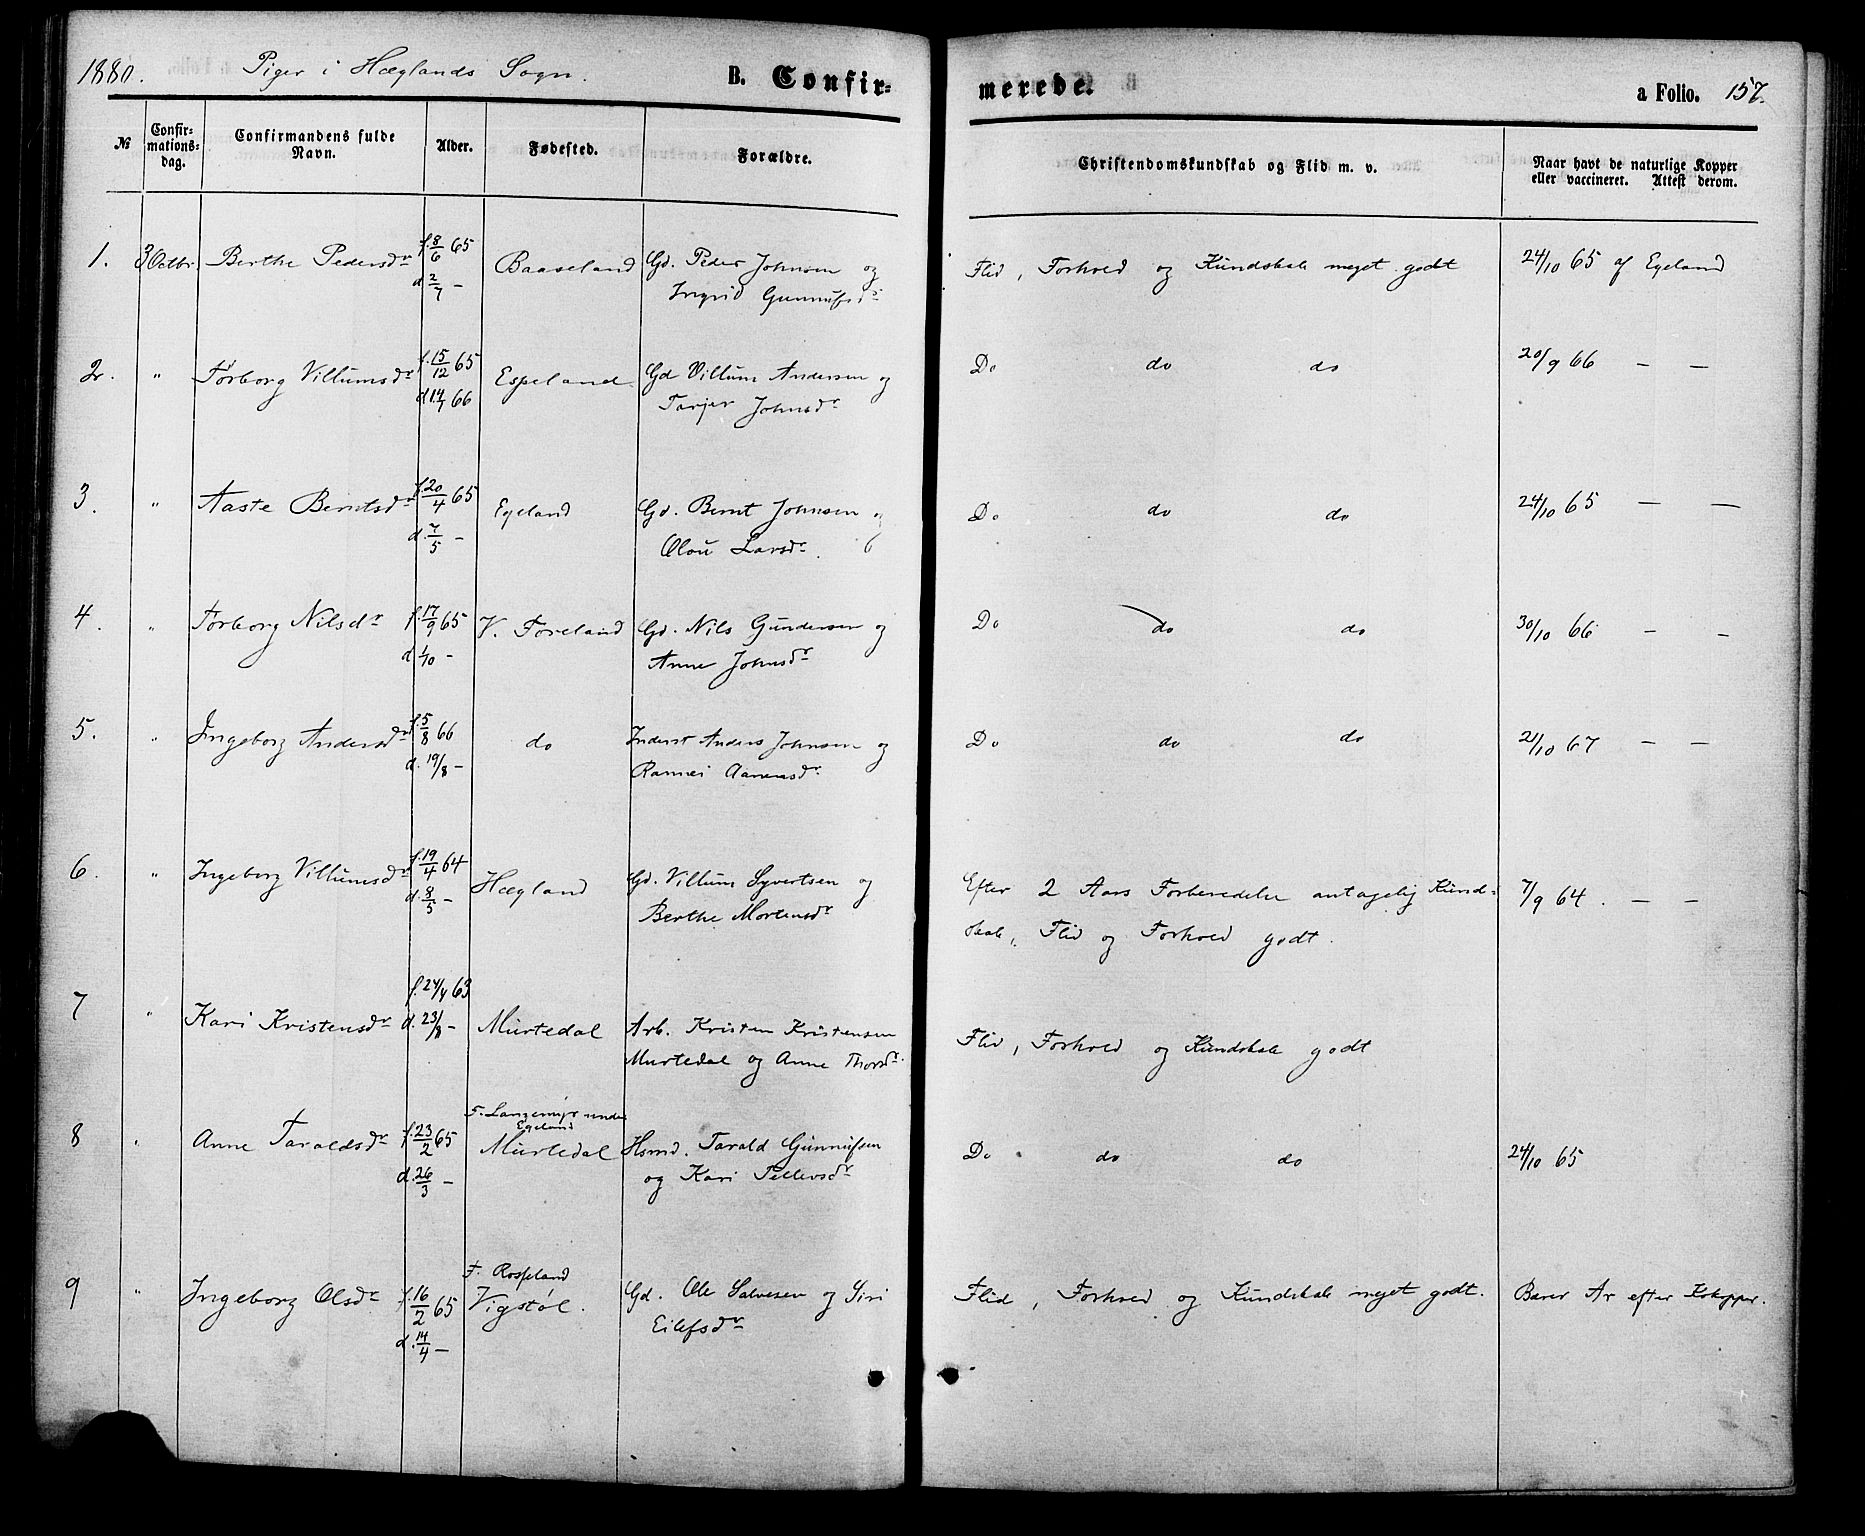 1880. Piger i Hæglands Sogn. B. Confir-
merede. a Folio. 157.
№ Confir-mations-dag. Confirmandens fulde Navn. Alder. Fødested. Forældre. Christendomskundskab og Flid m. v. Naar havt de naturlige Kopper eller vaccineret. Attest derom.
1. 3 Octbr. Berthe Pedersdr f. 8/6 65 Baaseland Gd. Peder Johnsen og Flid, Forhold og Kundskab meget godt 24/10 65 af Egeland
d 2/7 – Ingrid Gunnufsdr
2. " Torborg Villumsdr f. 15/12 65 Espeland Gd Villum Andersen og Do do do 20/9 66 – –
d 14/7 66 Tarjer Johnsdr
3. " Aaste Berntsdr f. 20/4 65 Egeland Gd. Bernt Johnsen og Do do do 24/10 65 – –
d. 7/5 – Olou Larsdr.
4. " Torborg Nilsdr f. 17/9 65 V. Foreland Gd. Nils Gundersen og Do do do 30/10 66 – –
d. 1/10 – Anne Johnsdr
5. " Ingeborg Andersdr f. 5/8 66 do Inderst Anders Johnsen og Do do do 21/10 67 – –
d. 19/8 – Rannei Aanensdr
6. " Ingeborg Villumsdr f. 19/4 64 Hægland Gd. Villum Syvertsen og Efter 2 Aars Forberedelse antagelig Kund- 7/9 64. – –
d. 8/5 – Berthe Mortensdr skab, Flid og Forhold godt.
7 " Kari Kristensdr f. 24/4 63
d. 23/8 – Murtedal Arb. Kristen Kristensen Flid, Forhold og Kundskab godt
Murtedal og Anne Thorsdr.
F. Langemyr under
Egeland
8 " Anne Taraldsdr f. 23/2 65 Murtedal Hsmd. Tarald Gunnufsen Do do do 24/10 65
d. 26/3 – og Kari Tellevsdr
F. Rosseland
9 " Ingeborg Olsdr f. 16/2 65 Vigstøl. Gd. Ole Salvesen og Siri Flid, Forhold og Kundskab meget godt. Bærer Ar efter Kokopper.
d. 14/4 – Eilefsdr